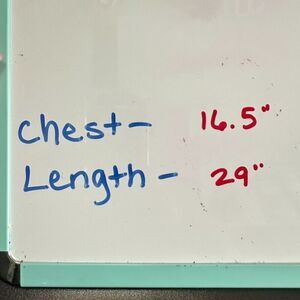 Chest - 16.5"
Length - 29"